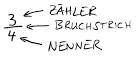 3 ← ZÄHLER
— ← BRUCHSTRICH
4 ← NENNER